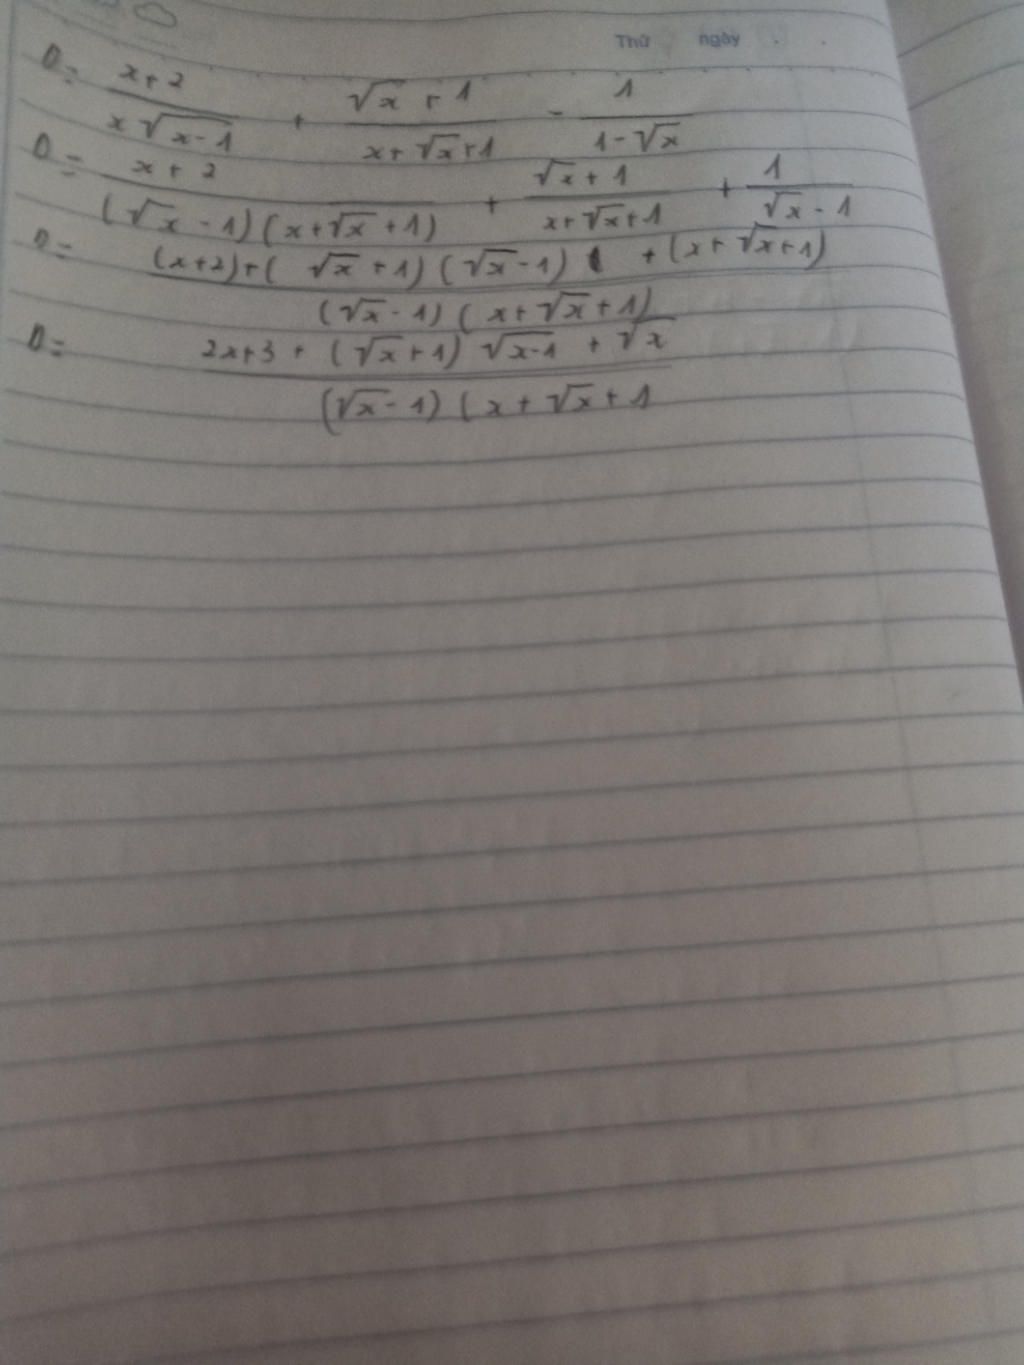 Thứ ngày . .
D = \frac{x+2}{x\sqrt{x-1}} + \frac{\sqrt{x}+1}{x+\sqrt{x}+1} - \frac{1}{1-\sqrt{x}}
D = \frac{x+2}{(\sqrt{x}-1)(x+\sqrt{x}+1)} + \frac{\sqrt{x}+1}{x+\sqrt{x}+1} + \frac{1}{\sqrt{x}-1}
D = \frac{(x+2)+(\sqrt{x}+1)(\sqrt{x}-1) + (x+\sqrt{x}+1)}{(\sqrt{x}-1)(x+\sqrt{x}+1)}
D = \frac{2x+3+(\sqrt{x}+1)\sqrt{x-1}+\sqrt{x}}{(\sqrt{x}-1)(x+\sqrt{x}+1}